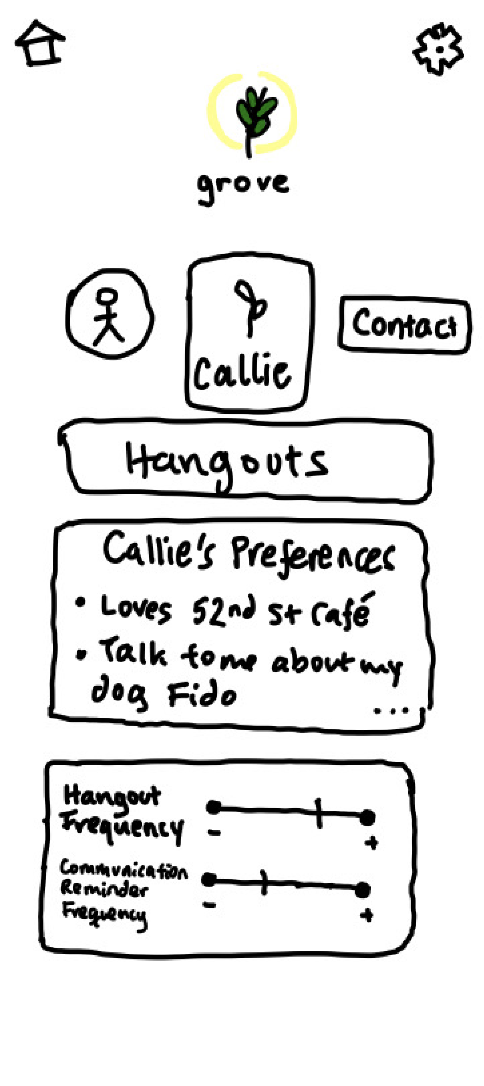 grove
Callie
Contact
Hangouts
Callie's Preferences
• Loves 52nd St Café
• Talk to me about my
dog Fido
....
Hangout
Frequency
- +
Communication
Reminder
Frequency
- +